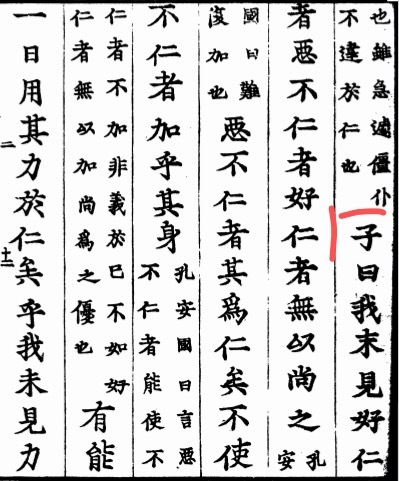 也雖急遽僵仆
不違於仁也
子曰我未見好仁
者惡不仁者好仁者無以尚之
孔
安
國曰難
復加也
惡不仁者其爲仁矣不使
不仁者加乎其身
孔安國曰言惡
不仁者能使不
仁者不加非義於己不如好
仁者無以加尚爲之優也
有能
一日用其力於仁矣乎我未見力
二
十二